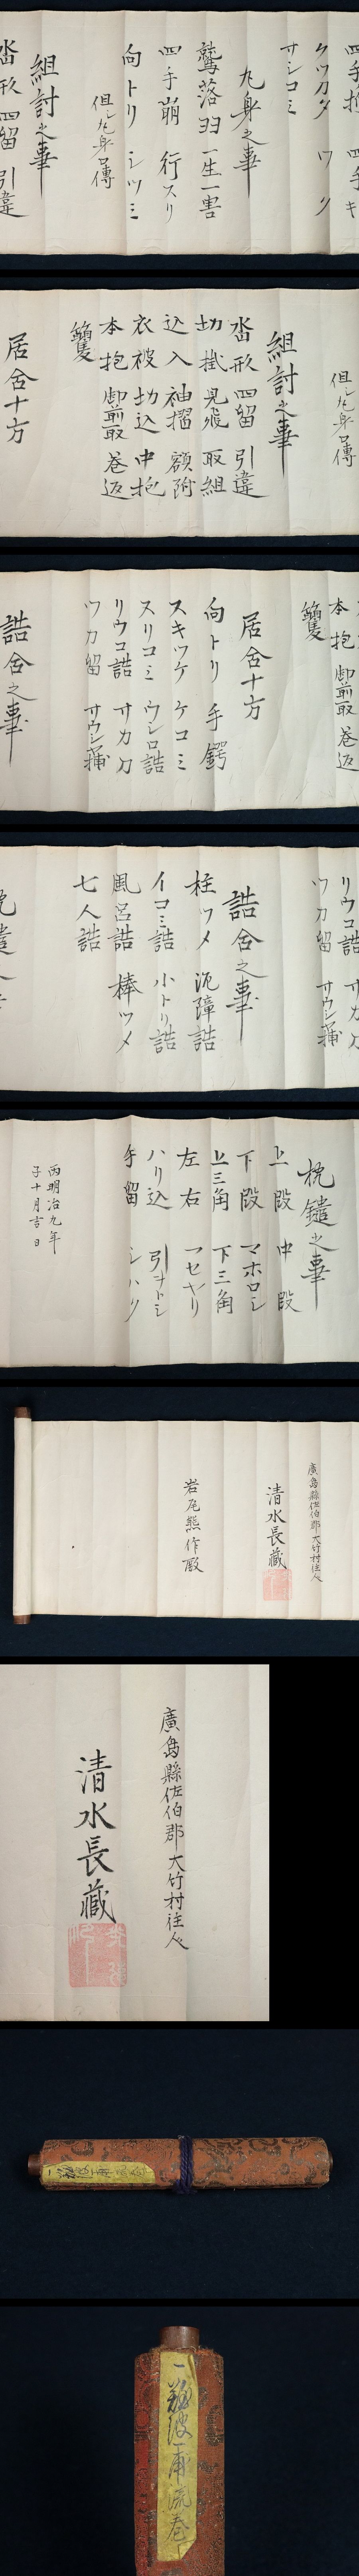 四手
四手キ
ケツカタ ワク
サシコミ
九身之事
鷲落羽 一生一害
四手崩 行スリ
向トリ シツミ
但シ九身口傳
組討之事
沓形 四留 引違
但シ九身口傳
組討之事
沓形 四留 引違
切掛 見飛 取組
込入 袖摺 額附
衣被 切込 中抱
本抱 御前取 巻返
居合十方
本抱 御前取 巻返
居合十方
向トリ 手鍔
スキツケ ケコミ
スリコミ ウシロ詰
リウコ詰 サカ刀
ツカ留
詰合之事
リウコ詰 サカ刀
ツカ留
詰合之事
柱ツメ 泥障詰
イコミ詰 小トリ詰
風呂詰 棒ツメ
七人詰
枕鑓之事
上段 中段
下段 マホロシ
上三角 下三角
左右
ハリ込 引ヲトシ
手留 シハク
丙明治九年
子十月吉日
廣島縣佐伯郡大竹村住人
清水長蔵
岩尾熊作殿
廣島縣佐伯郡大竹村住人
清水長蔵
一難波一甫流巻
一難波一甫流巻